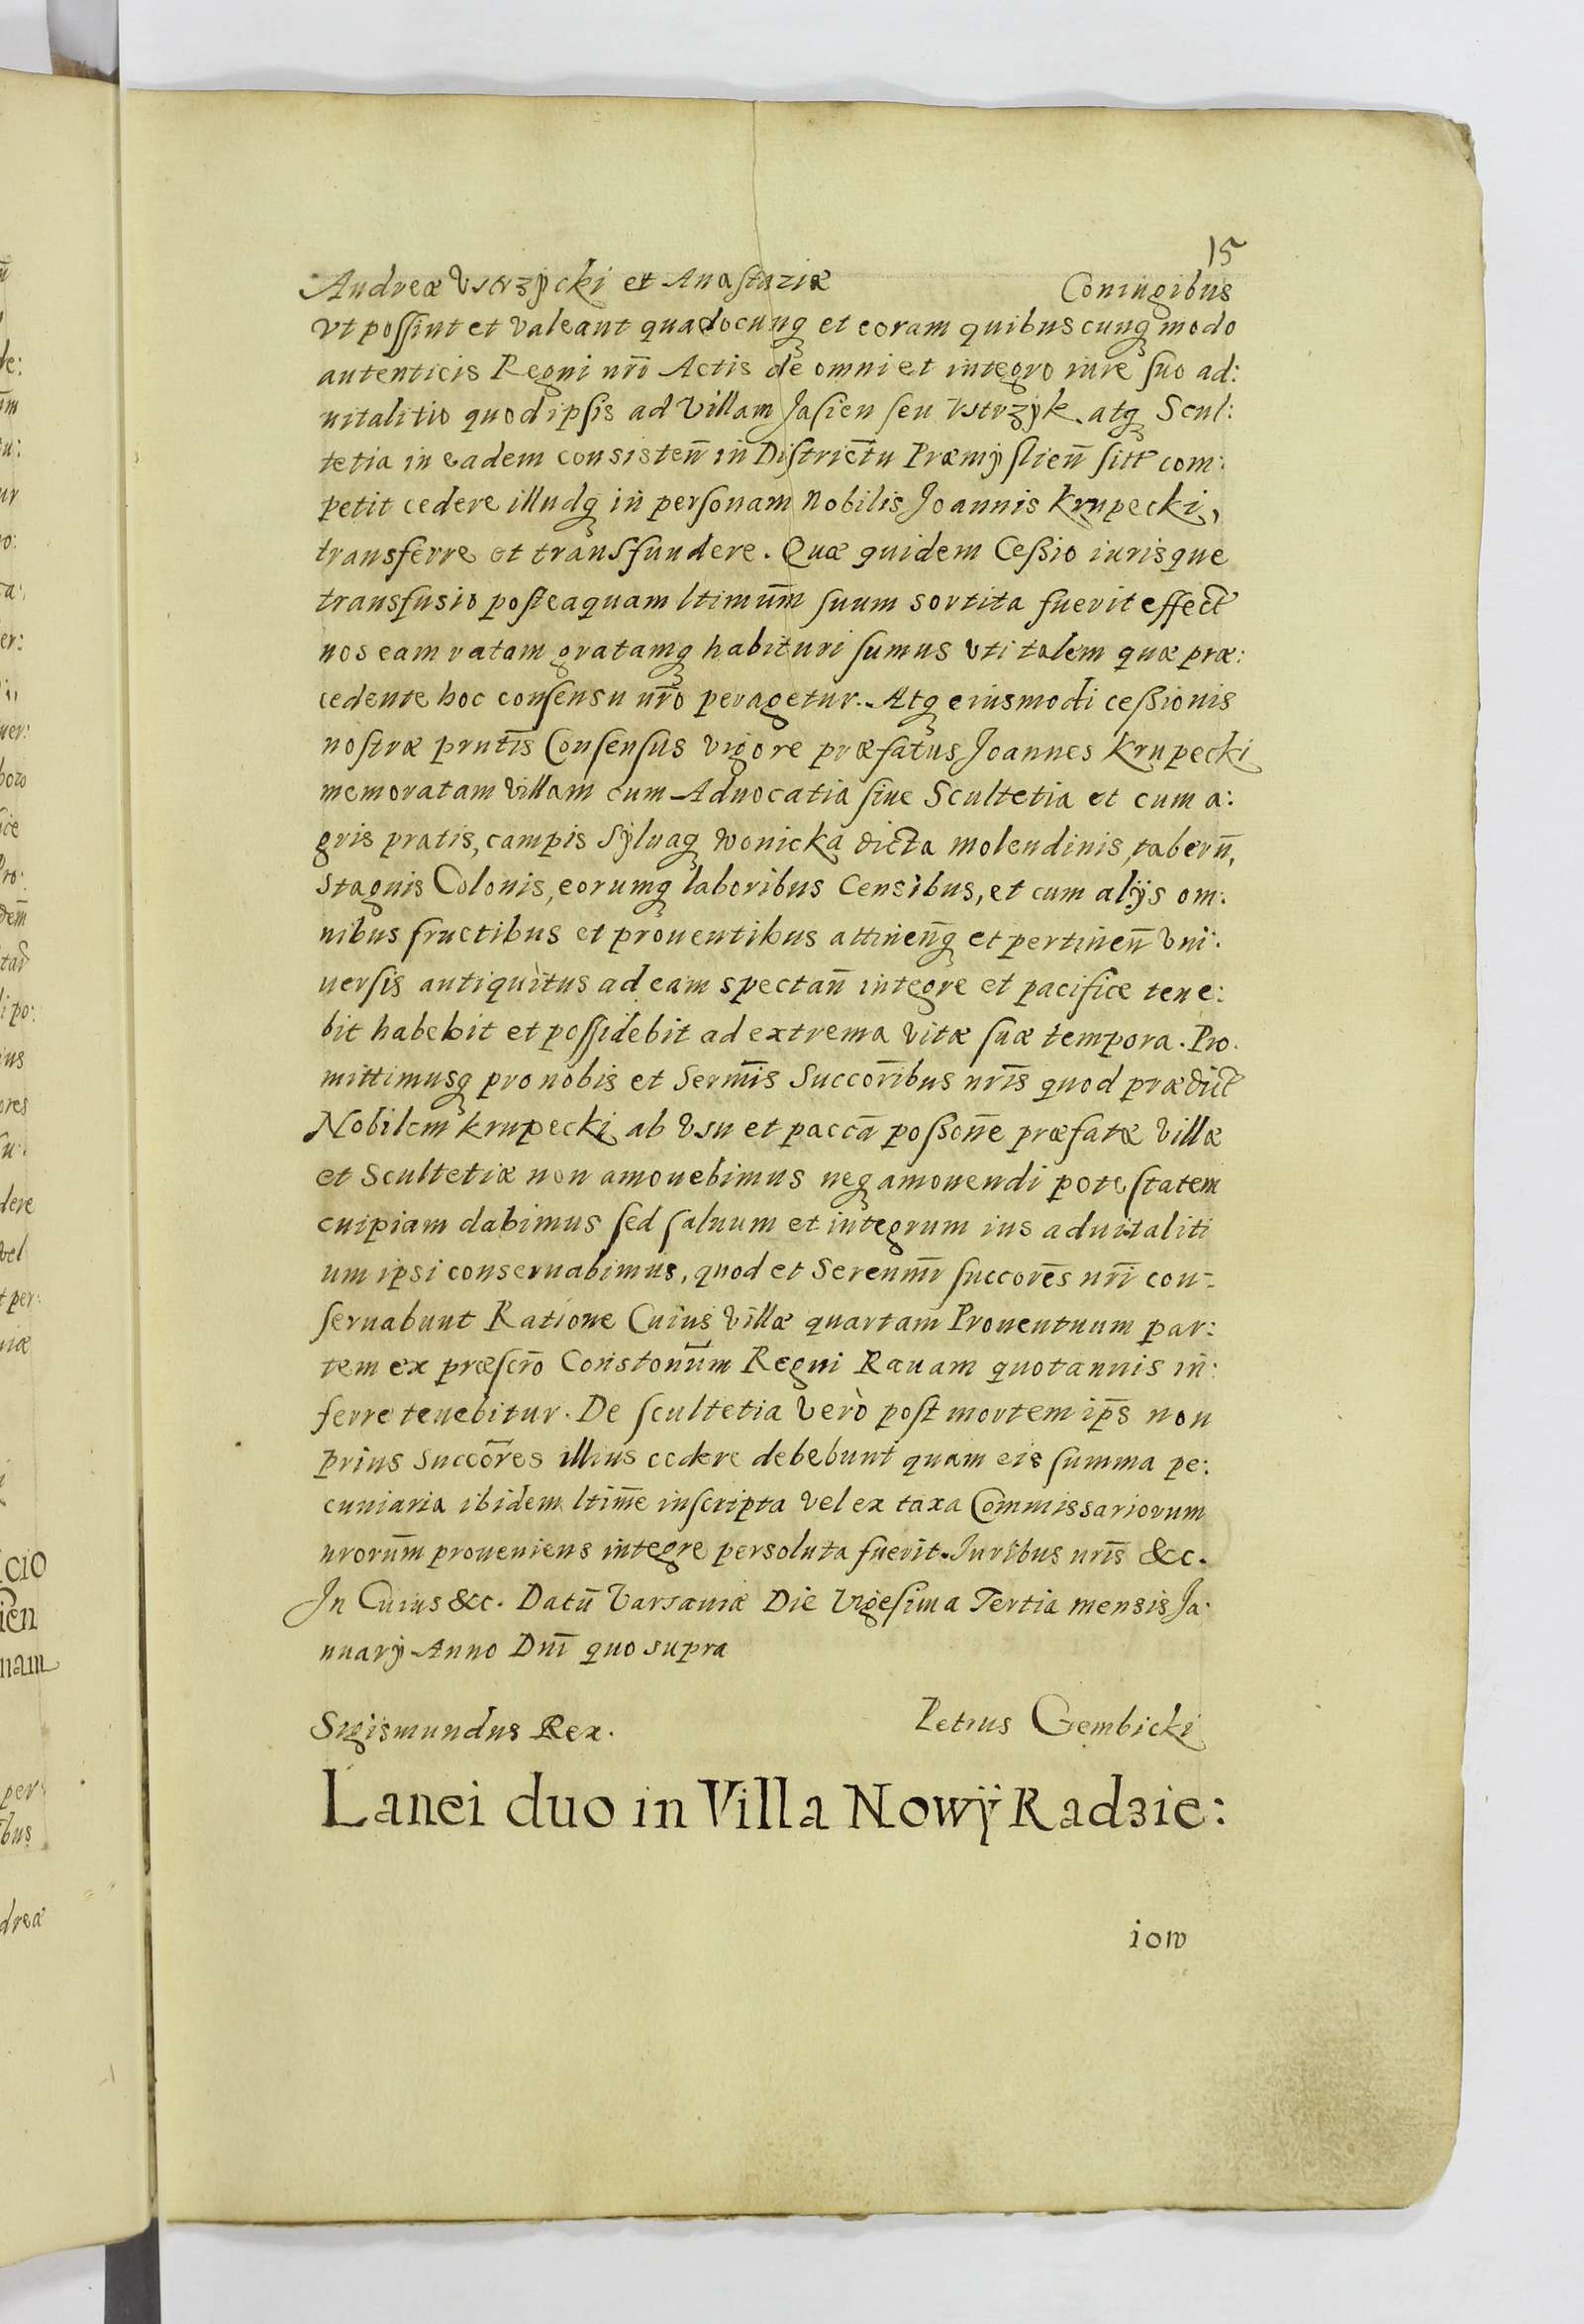 15
Andreæ Vstrzÿcki et Anastaziæ Coniugibus
Vt possint et valeant quadocunqꝫ et coram quibuscunqꝫ modo
autenticis Regni nr̄i Actis de omni et integro iure suo ad:
uitalitio quod ipsis ad Villam Jasien seu Vstrzÿk atqꝫ Scul:
tetia in eadem consisteñ in Districtu Præmÿslieñ sitt com:
petit cedere illudqꝫ in personam Nobilis Joannis Krupecki,
transferre et transfundere. Quæ quidem Cessio iurisque
transfusio posteaquam ltimūm suum sortita fuerit effect
nos eam ratam gratamqꝫ habituri sumus vti talem quæ præ:
cedente hoc consensu nr̄o peragetur. Atqꝫ eiusmodi cessionis
nostræ prntīs Consensus vigore præfatus Joannes Krupecki
memoratam villam cum Aduocatia siue Scultetia et cum a:
gris pratis, campis Sÿluaqꝫ Wonicka dicta molendinis, taberñ,
Stagnis Colonis, eorumqꝫ laboribus Censibus, et cum alÿs om:
nibus fructibus et prouentibus attineñqꝫ et pertineñ vni:
uersis antiquitus ad eam spectañ integre et pacifice tene:
bit habebit et possidebit ad extrema vitæ suæ tempora. Pro:
mittimusqꝫ pro nobis et Sermīs Succorībus nrīs quod prædict
Nobilem Krupecki ab vsu et paccā possonē præfatæ villæ
et Scultetiæ non amouebimus neqꝫ amouendi potestatem
cuipiam dabimus sed saluum et integrum ius aduitaliti
um ipsi conseruabimus, quod et Serenmī succorēs nrī con-
seruabunt Ratione Cuius villæ quartam Prouentuum par:
tem ex præscrō Constonūm Regni Rauam quotannis in:
ferre tenebitur. De scultetia verò post mortem ip̄s non
prius Succorēs illius cedere debebunt quam eis summa pe:
cuniaria ibidem ltimē inscripta vel ex taxa Commissariorum
nrorūm proueniens integre persoluta fuerit. Iuribus nrīs &c.
In Cuius &c. Datū Varsauiæ Die Vigesima Tertia mensis Ja:
nuarÿ Anno Dnī quo supra
Sigismundus Rex. Petrus Gembicki
Lanei duo in Villa Nowÿ Radzie:
iow